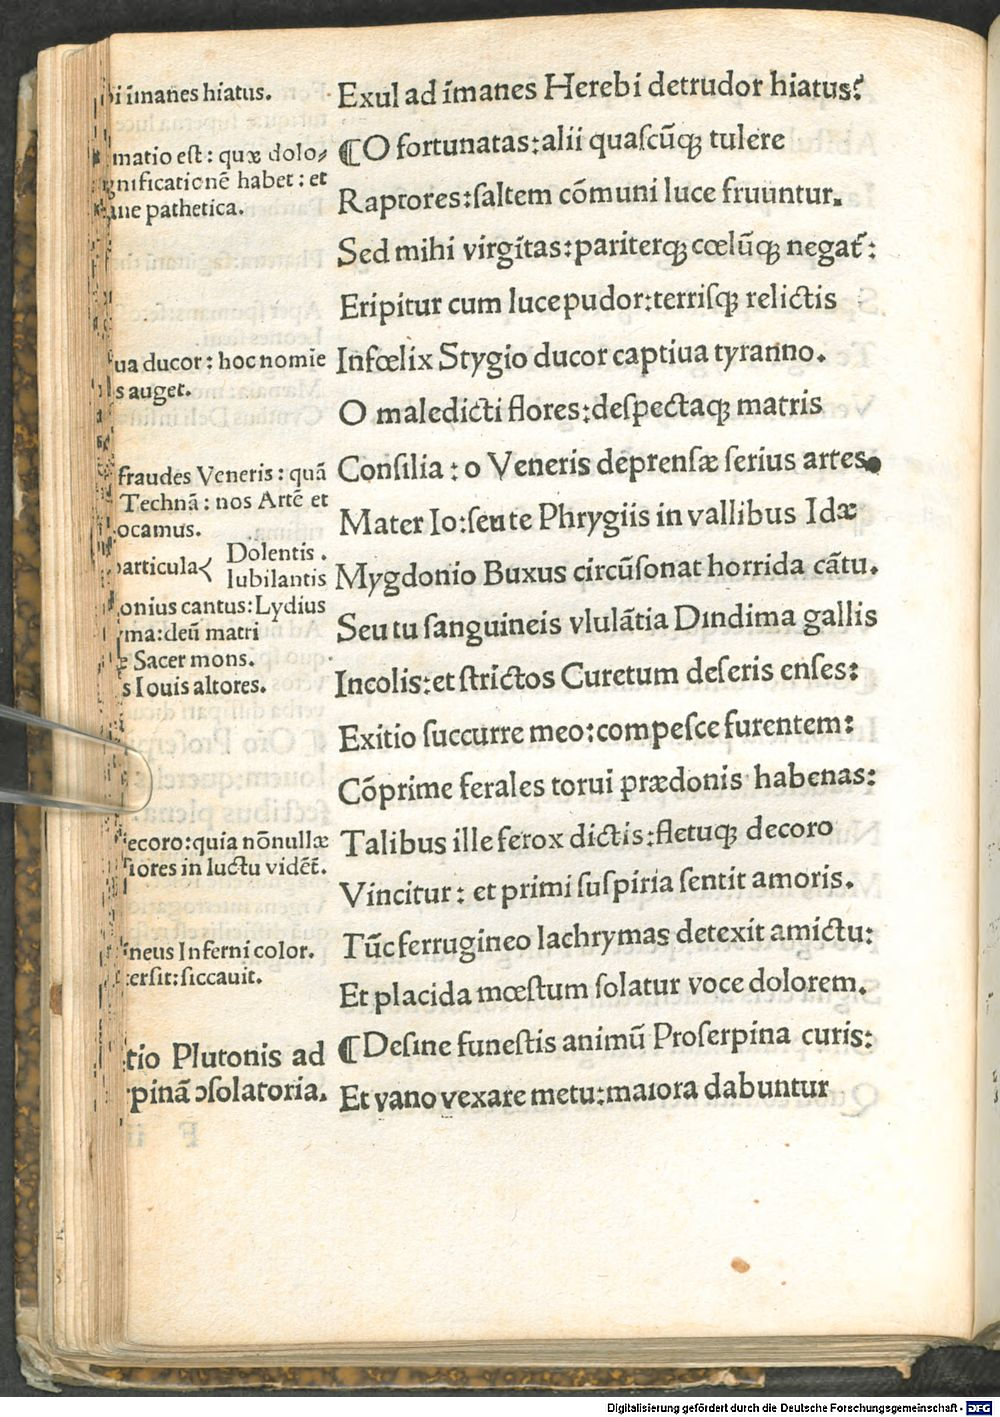 i īmanes hiatus.
matio est: quæ dolo⸗
gnificationē habet: et
ne pathetica.
ua ducor: hoc nomie
s auget.
fraudes Veneris: quā
Technā: nos Artē et
ocamus.
articula< Dolentis.
Iubilantis
onius cantus: Lydius
ma: deū matri
Sacer mons.
s Iouis altores.
ecoro: quia nōnullæ
iores in luctu vidēt̄.
neus Inferni color.
ersit: siccauit.
tio Plutonis ad
pinā ↄsolatoria.
Exul ad īmanes Herebi detrudor hiatus?
¶O fortunatas: alii quaſcūqꝫ tulere
Raptores: ſaltem cōmuni luce fruuntur.
Sed mihi virgītas: pariterqꝫ cœlūqꝫ negat̄:
Eripitur cum luce pudor: terriſqꝫ relictis
Infœlix Stygio ducor captiua tyranno.
O maledicti flores: deſpectaqꝫ matris
Conſilia: o Veneris deprenſæ ſerius artes.
Mater Io: ſeu te Phrygiis in vallibus Idæ
Mygdonio Buxus circūſonat horrida cātu.
Seu tu ſanguineis vlulātia Dındima gallis
Incolis: et ſtrictos Curetum deſeris enſes:
Exitio ſuccurre meo: compeſce furentem:
Cōprime ferales torui prædonis habenas:
Talibus ille ferox dictis: fletuqꝫ decoro
Vincitur: et primi ſuſpiria ſentit amoris.
Tūc ferrugineo lachrymas detexit amictu:
Et placida mœſtum ſolatur voce dolorem.
¶Deſine funeſtis animū Proſerpina curis:
Et vano vexare metu: maıora dabuntur
Digitalisierung gefördert durch die Deutsche Forschungsgemeinschaft - DFG